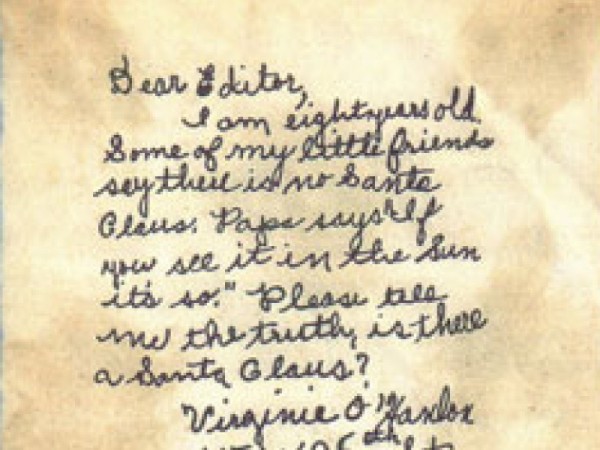 Dear Editor,
I am eight years old.
Some of my little friends
say there is no Santa
Claus. Papa says "If
you see it in the Sun
it's so." Please tell
me the truth, is there
a Santa Claus?
Virginia O'Hanlon